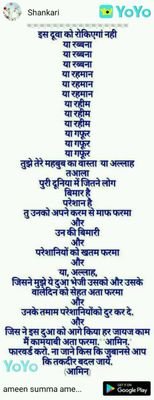 Shankari
YoYo
इस दूवा को रोकिएगां नही
या रब्बना
या रब्बना
या रब्बना
या रहमान
या रहमान
या रहमान
या रहीम
या रहीम
या रहीम
या गफूर
या गफूर
या गफूर
तुझे तेरे महबुब का वास्ता या अल्लाह
तआला
पुरी दूनिया में जितने लोग
बिमार है
परेशान है
तु उनको अपने करम से माफ फरमा
और
उन की बिमारी
और
परेशानियों को खतम फरमा
और
या, अल्लाह,
जिसने मुझे ये दुआ भेजी उसको और उसके
वालिदैन को सेहत अता फरमा
और
उनके तमाम परेशानियोंको दुर कर दे.
और
जिस ने इस दुआ को आगे किया हर जायज काम
में कामयाबी अता फरमा. ' आमिन,
फारवर्ड करो. ना जाने किस कि जुबानसे आप
कि तकदीर बदल जाये.
(आमिन)
ameen summa ame...
Google Play
YoYo